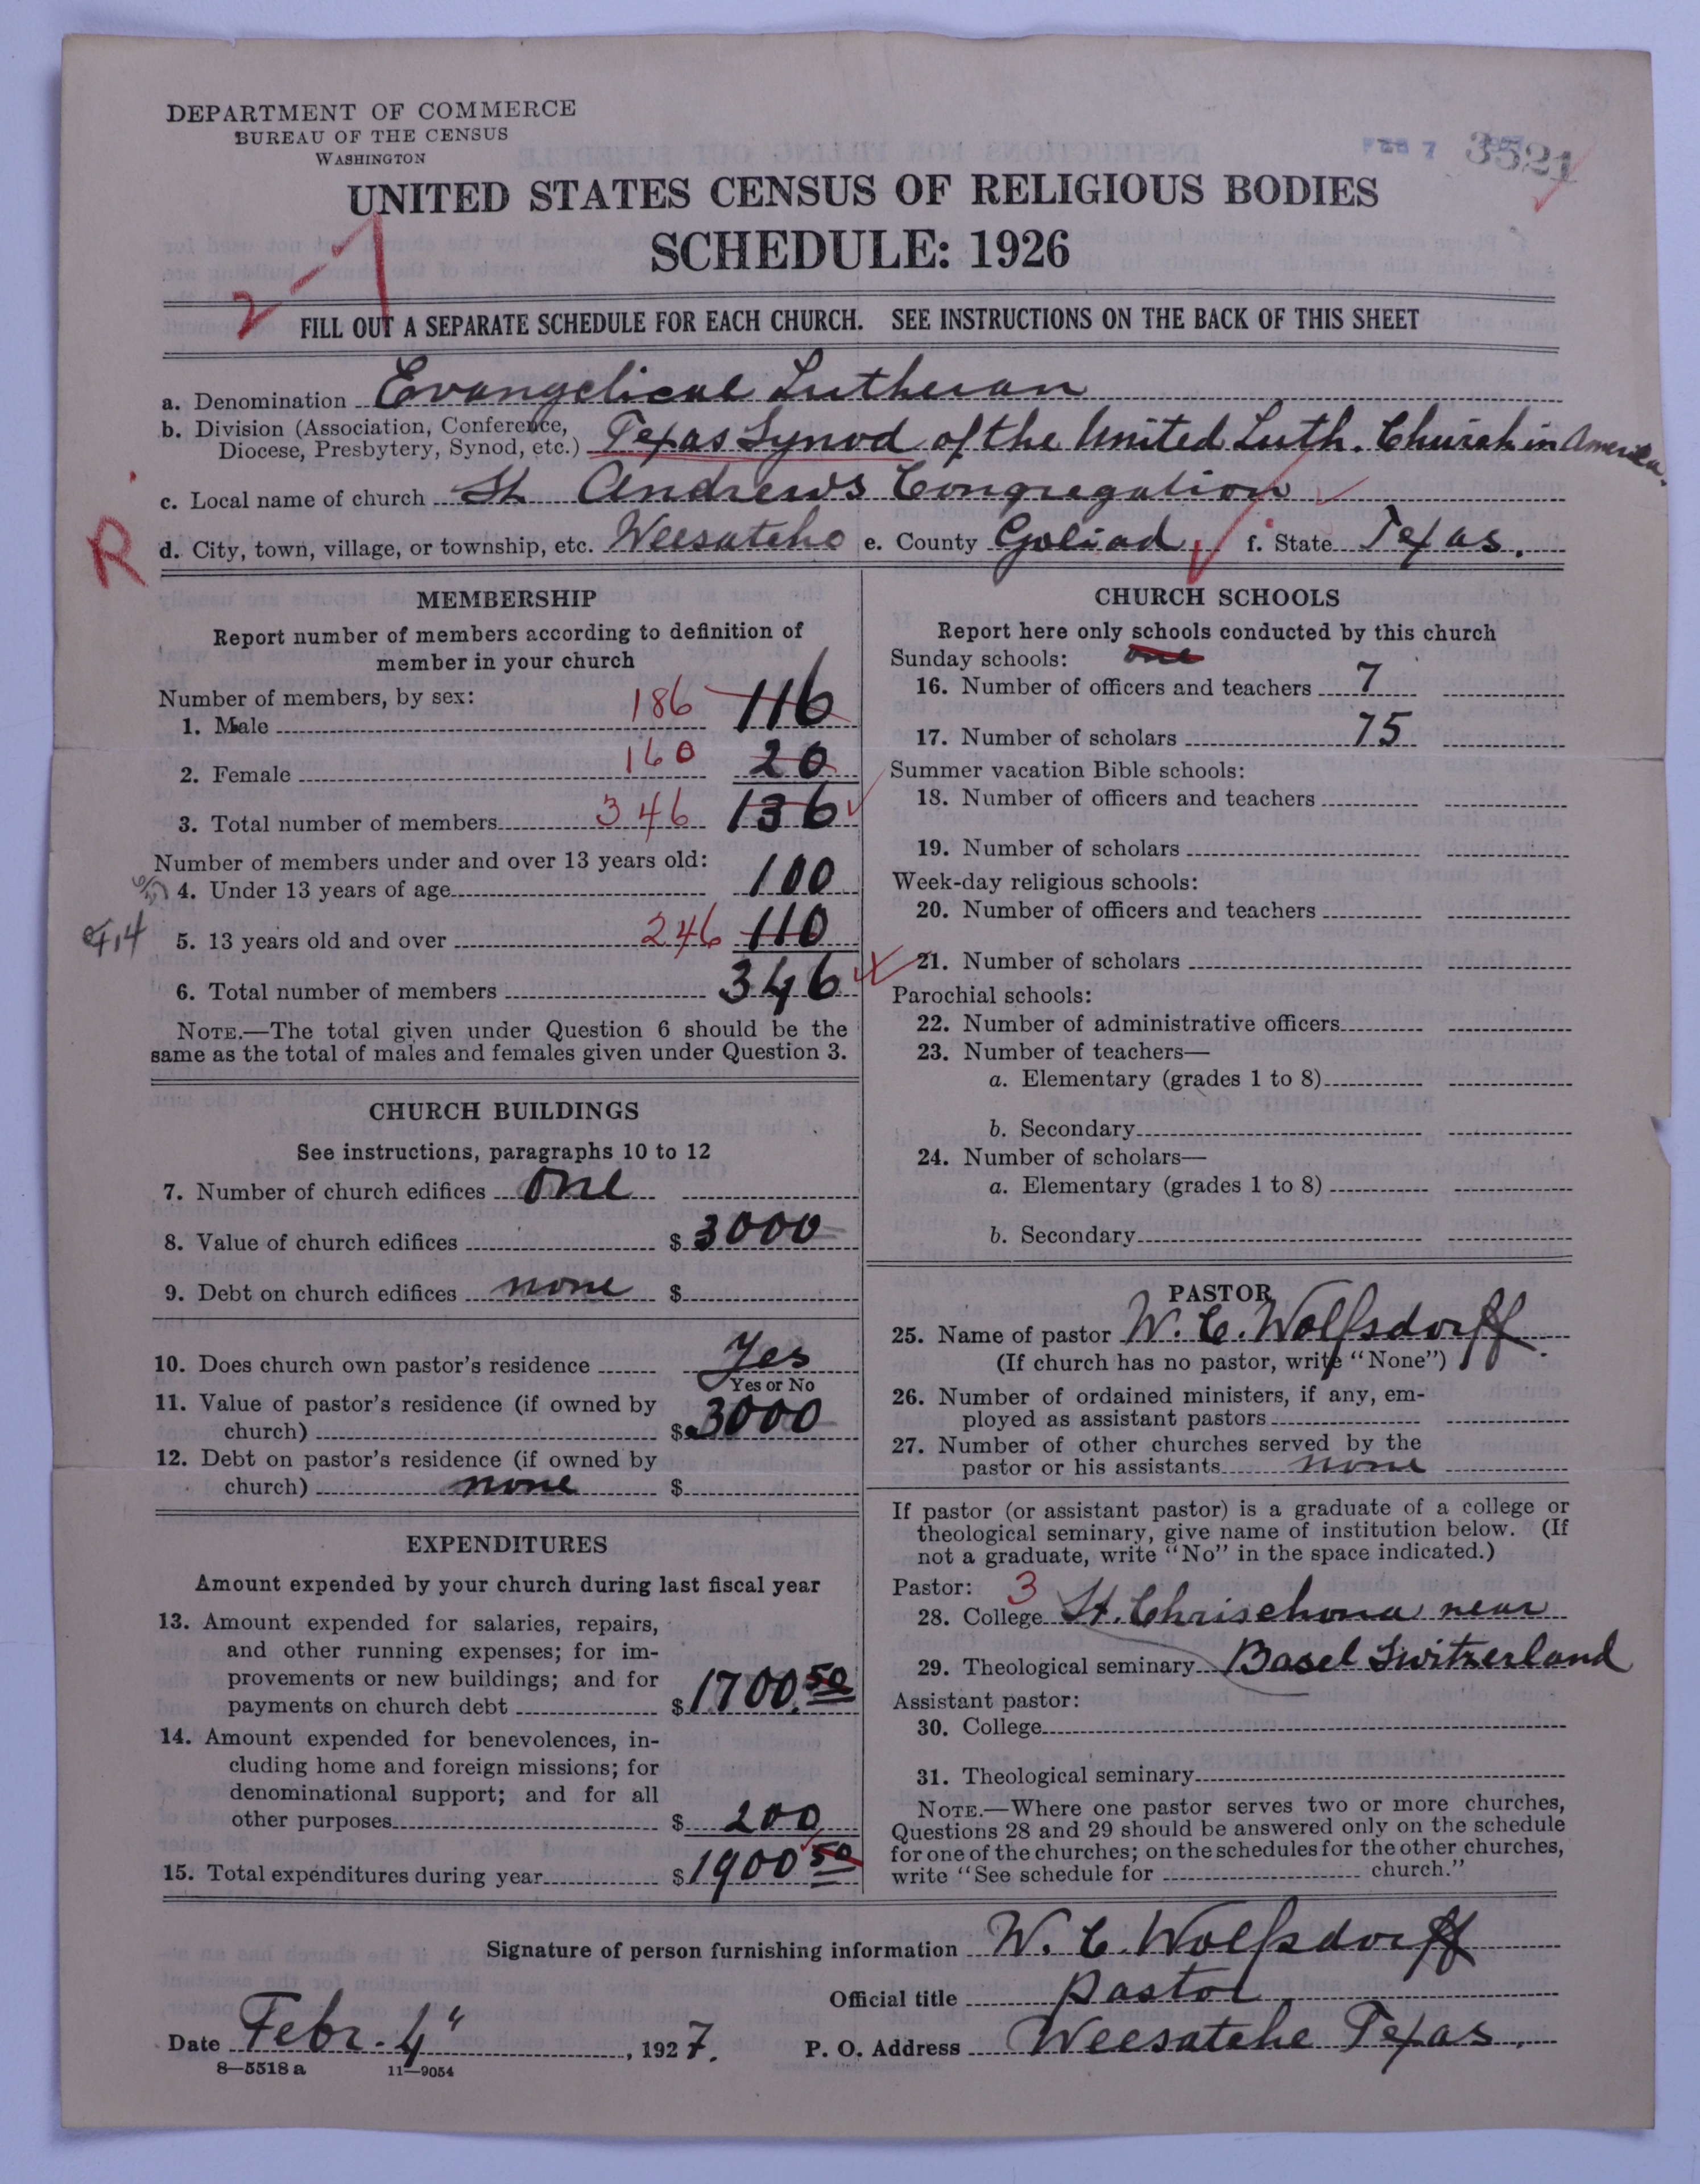 DEPARTMENT OF COMMERCE
BUREAU OF THE CENSUS
WASHINGTON
FEB 7 3521
UNITED STATES CENSUS OF RELIGIOUS BODIES
SCHEDULE: 1926
2-1
FILL OUT A SEPARATE SCHEDULE FOR EACH CHURCH. SEE INSTRUCTIONS ON THE BACK OF THIS SHEET
a. Denomination Evangelical Lutheran
b. Division (Association, Conference,
Diocese, Presbytery, Synod, etc.) Texas Synod of the United Luth. Church in America.
c. Local name of church St. Andrews Congregation
R
d. City, town, village, or township, etc. Weesatche e. County Goliad, f. State Texas.
MEMBERSHIP
Report number of members according to definition of
member in your church
Number of members, by sex:
1. Male 186 116
2. Female 160 20
3. Total number of members 346 136
Number of members under and over 13 years old:
4. Under 13 years of age 100
5. 13 years old and over 246 110
6. Total number of members 346
NOTE.—The total given under Question 6 should be the
same as the total of males and females given under Question 3.
CHURCH BUILDINGS
See instructions, paragraphs 10 to 12
7. Number of church edifices One
8. Value of church edifices $ 3000
9. Debt on church edifices none $
10. Does church own pastor's residence Yes
Yes or No
11. Value of pastor's residence (if owned by
church) $ 3000
12. Debt on pastor's residence (if owned by
church) none $
EXPENDITURES
Amount expended by your church during last fiscal year
13. Amount expended for salaries, repairs,
and other running expenses; for im-
provements or new buildings; and for
payments on church debt $ 1700.50
14. Amount expended for benevolences, in-
cluding home and foreign missions; for
denominational support; and for all
other purposes $ 200
15. Total expenditures during year $ 1900 50
CHURCH SCHOOLS
Report here only schools conducted by this church
Sunday schools: one
16. Number of officers and teachers 7
17. Number of scholars 75
Summer vacation Bible schools:
18. Number of officers and teachers
19. Number of scholars
Week-day religious schools:
20. Number of officers and teachers
21. Number of scholars
Parochial schools:
22. Number of administrative officers
23. Number of teachers—
a. Elementary (grades 1 to 8)
b. Secondary
24. Number of scholars—
a. Elementary (grades 1 to 8)
b. Secondary
PASTOR
25. Name of pastor W. C. Wolfsdorff.
(If church has no pastor, write "None")
26. Number of ordained ministers, if any, em-
ployed as assistant pastors
27. Number of other churches served by the
pastor or his assistants none
If pastor (or assistant pastor) is a graduate of a college or
theological seminary, give name of institution below. (If
not a graduate, write "No" in the space indicated.)
Pastor: 3
28. College St. Chrischona near
29. Theological seminary Basel Switzerland
Assistant pastor:
30. College
31. Theological seminary
NOTE.—Where one pastor serves two or more churches,
Questions 28 and 29 should be answered only on the schedule
for one of the churches; on the schedules for the other churches,
write "See schedule for church."
Signature of person furnishing information W. C. Wolfsdorff
Official title pastor
Date Febr. 4", 1927. P. O. Address Weesatche Texas.
8—5518 a 11—9054